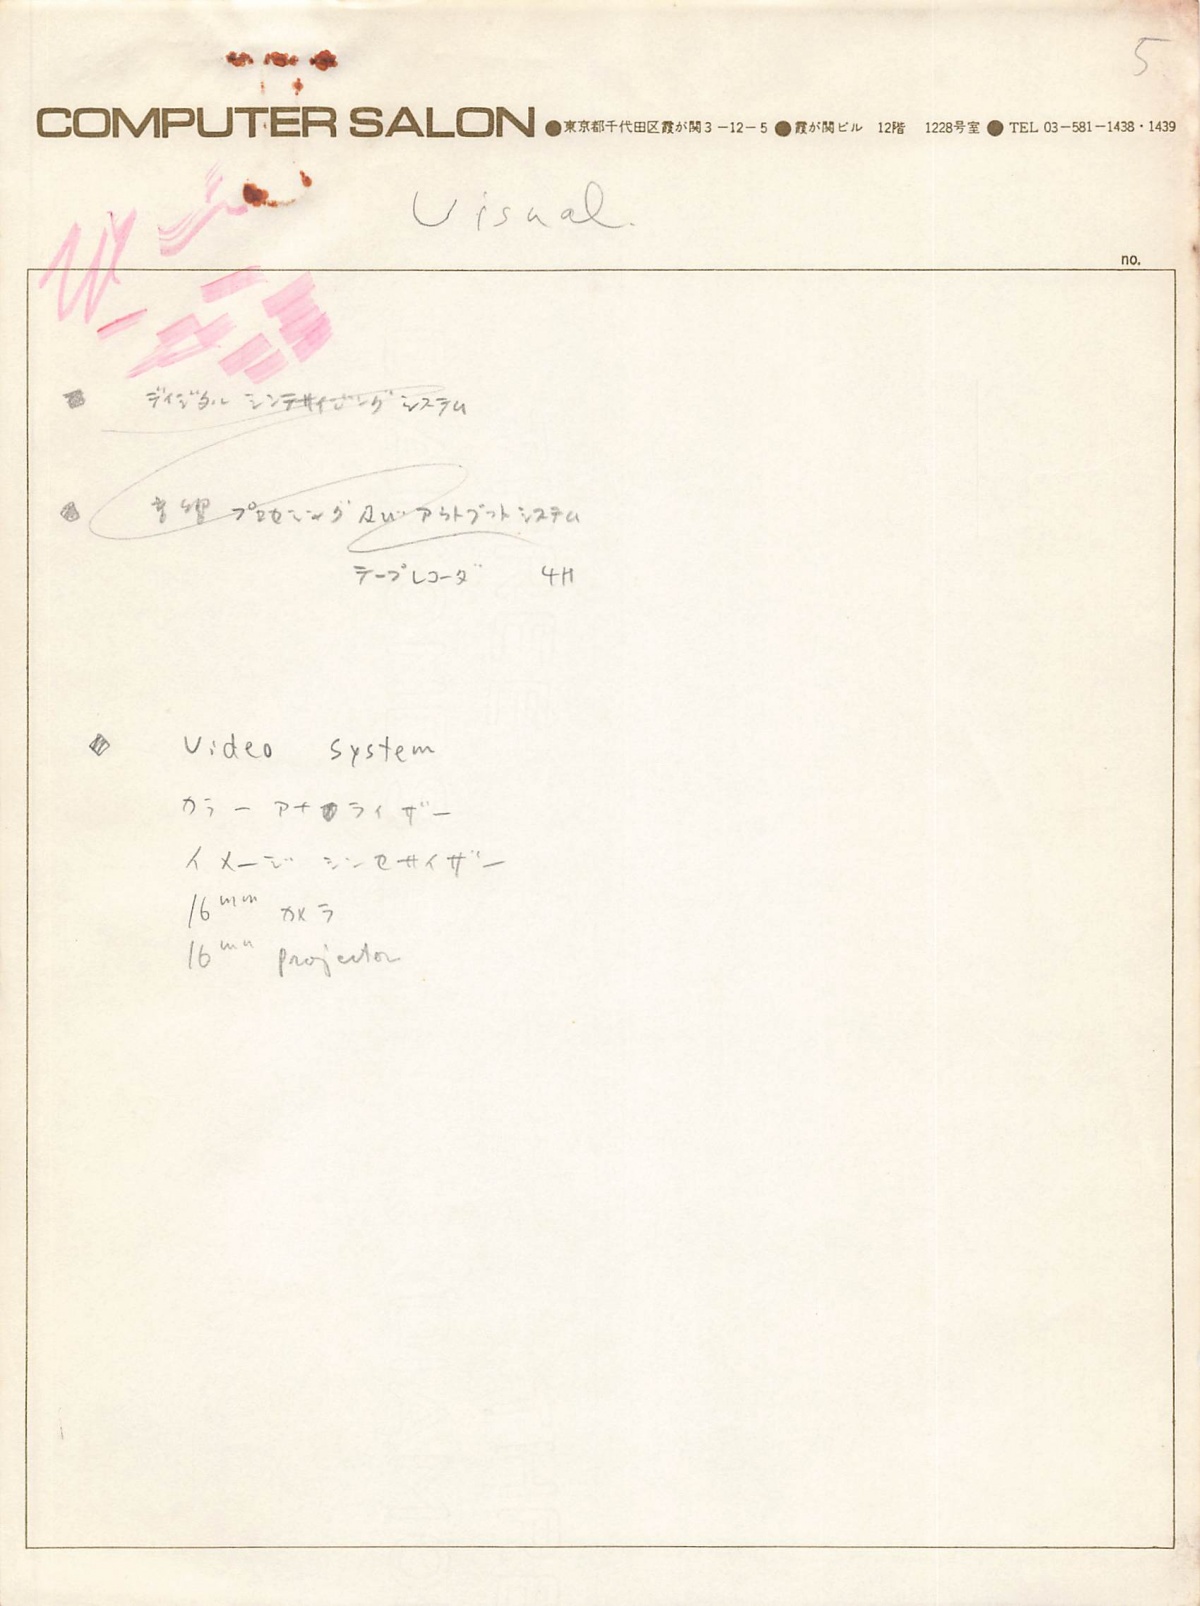 5
COMPUTER SALON ●東京都千代田区霞が関3-12-5 ●霞が関ビル 12階 1228号室 ● TEL 03-581-1438・1439
Visual.
no.
ディジタル シンテサイジング システム
音響 プロセシング及び アウトプットシステム
テープレコーダ 4H
Video System
カラー アナライザー
イメージ シンセサイザー
16mm カメラ
16mm projector